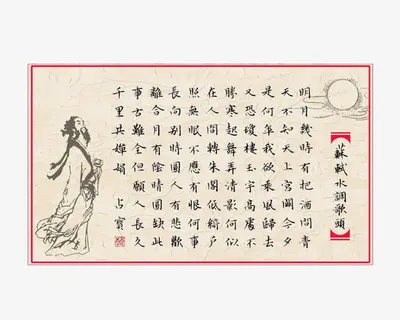 【蘇軾水調歌頭】
明月幾時有把酒問青
天不知天上宮闕今夕
是何年我欲乘風歸去
又恐瓊樓玉宇高處不
勝寒起舞弄清影何似
在人間轉朱閣低綺戶
照無眠不應有恨何事
長向別時圓人有悲歡
離合月有陰晴圓缺此
事古難全但願人長久
千里共嬋娟 占寶